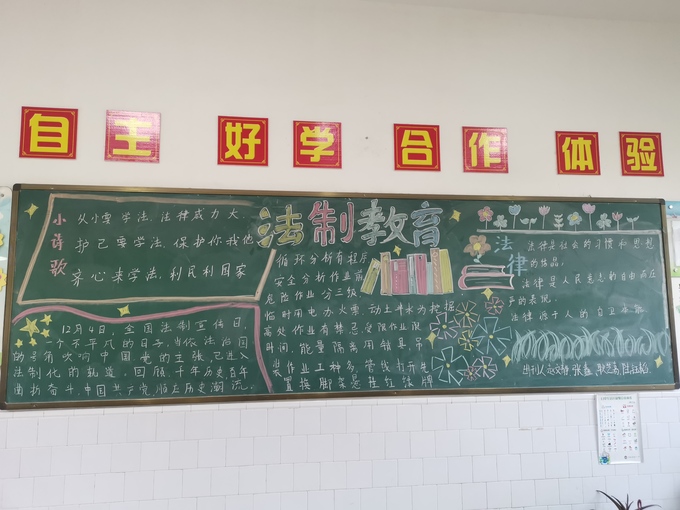 自主 好学 合作 体验
小诗歌
从小要学法，法律威力大，
护己要学法，保护你我他
齐心来学法，利民利国家
12月4日，全国法制宣传日，
一个不平凡的日子，当依法治国
的号角吹响 中国党的主张，已进入
法制化的轨道。回顾，十年历史，百年
曲折奋斗，中国共产党，顺应历史潮流
法制教育
循环分析有程序
安全分析作业前
危险作业分三级
临时用电办火票，动土半米为挖掘
高处作业有禁忌，受限
时间，能量隔离用锁具
作业工种多，管线打开
置换脚架是挂红绿牌
法律
法律是社会的习惯和思想
的结晶。
法律是人民意志的自由而庄
严的表现。
法律源于人的自卫
出刊人